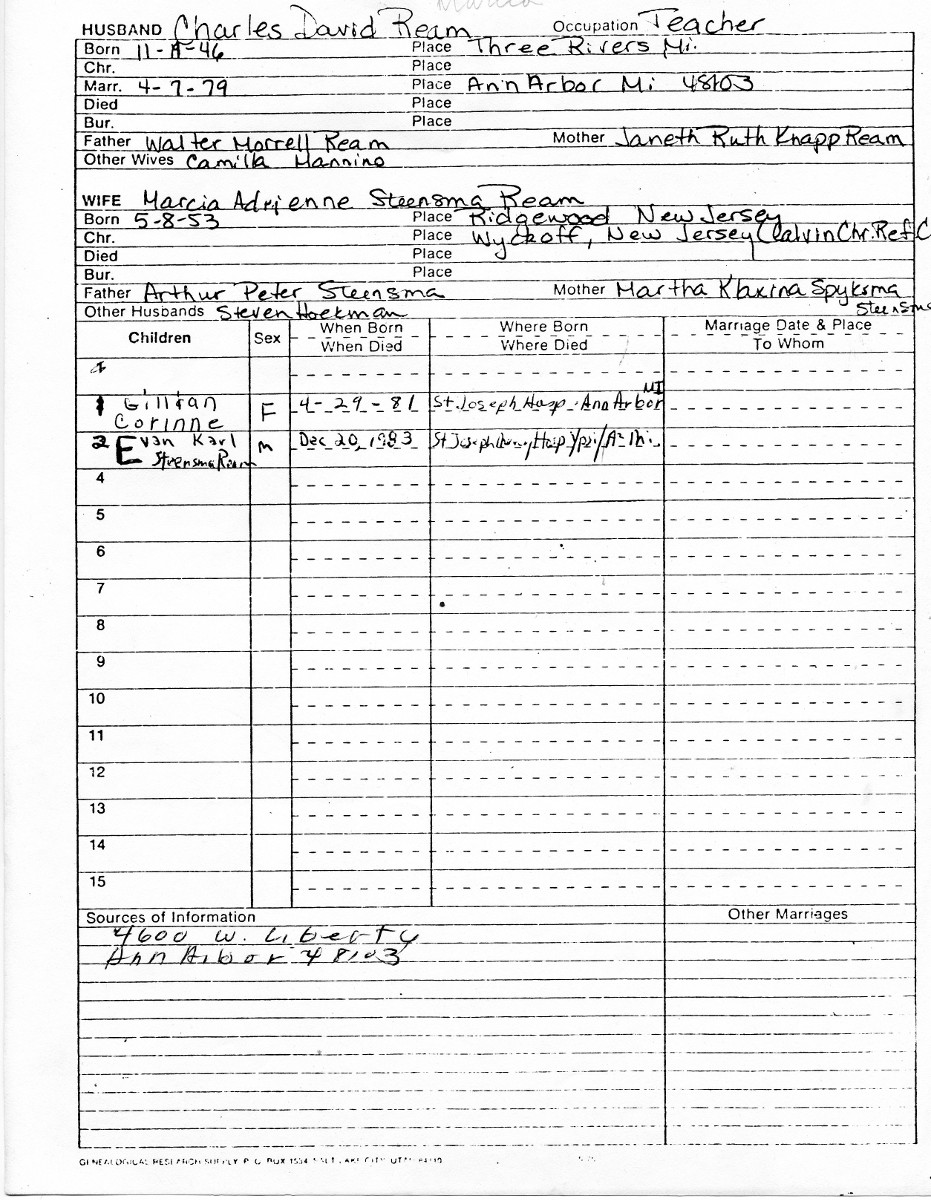 Marcia
HUSBAND Charles David Ream Occupation Teacher
Born 11- -46 Place Three Rivers Mi.
Chr. Place
Marr. 4-7-79 Place Ann Arbor Mi 48103
Died Place
Bur. Place
Father Walter Morrell Ream Mother Janeth Ruth Knapp Ream
Other Wives Camilla Mannino
WIFE Marcia Adrienne Steensma Ream
Born 5-8-53 Place Ridgewood New Jersey
Chr. Place Wyckoff, New Jersey Calvin Chr. Ref. C
Died Place
Bur. Place
Father Arthur Peter Steensma Mother Martha Klaxina Spyksma
Other Husbands Steven Hoekman Steensma
Children Sex When Born Where Born Marriage Date & Place
When Died Where Died To Whom
1 Gillian Corinne F 4-29-81 St. Joseph Hosp. Ann Arbor MI
2 Evan Karl Steensma Ream M Dec 20, 1983 St Joseph Hosp Ypsi/A2 Mi.
4
5
6
7
8
9
10
11
12
13
14
15
Sources of Information Other Marriages
4600 W. Liberty
Ann Arbor 48103
GENEALOGICAL RESEARCH SUPPLY P. O. BOX 1554 SALT LAKE CITY, UTAH 84110